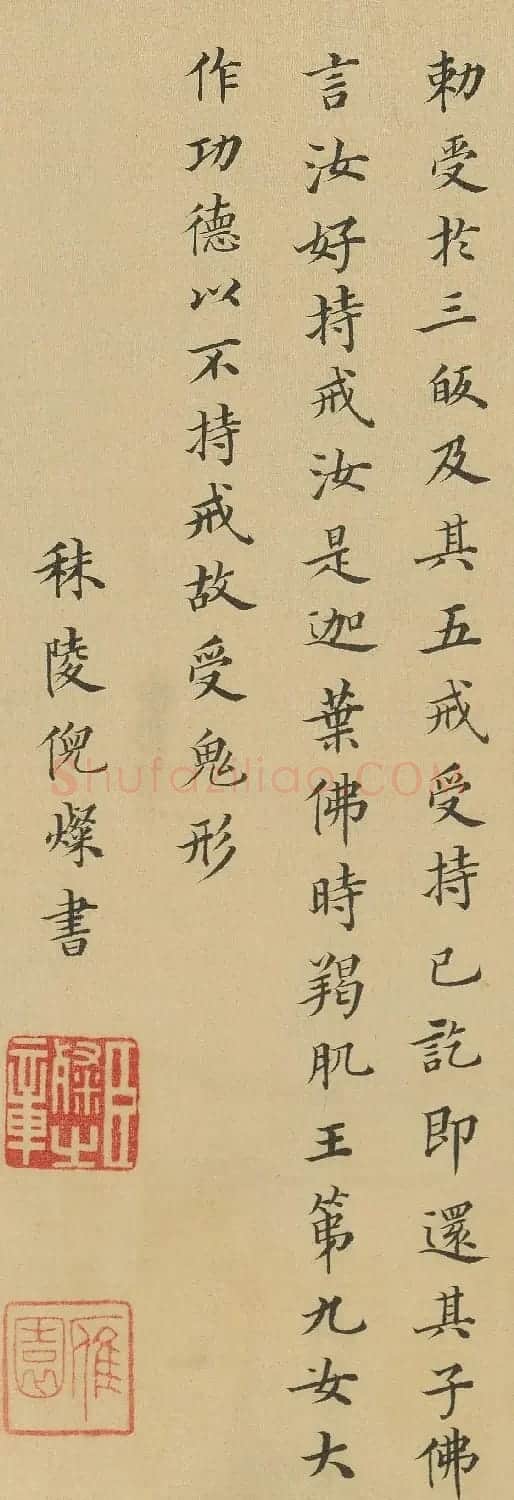 勑受於三皈及其五戒受持已訖即還其子佛
言汝好持戒汝是迦葉佛時羯肌王第九女大
作功德以不持戒故受鬼形
秣陵倪燦書
shufaziliao.COM
雁園